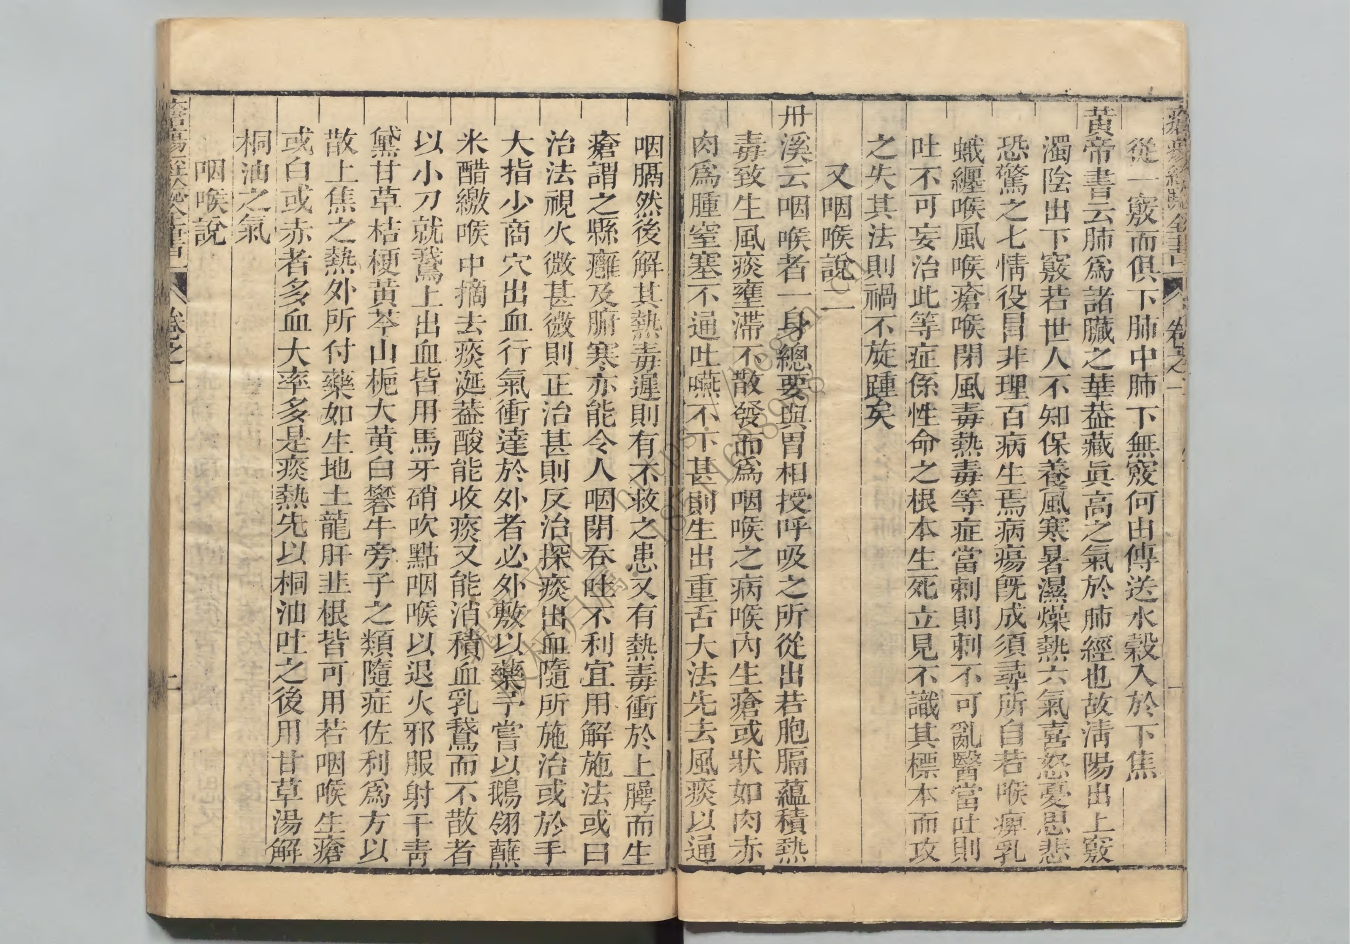 從一竅而俱下肺中肺下無竅何由傳送水穀入於下焦
黃帝書云肺爲諸臟之華葢藏眞高之氣於肺經也故淸陽出上竅
濁陰出下竅若世人不知保養風寒暑濕燥熱六氣喜怒憂思悲
恐驚之七情役冒非理百病生焉病瘍旣成須尋所自若喉痹乳
蛾纒喉風喉瘡喉閉風毒熱毒等症當刺則刺不可亂醫當吐則
吐不可妄治此等症係性命之根本生死立見不識其標本而攻
之失其法則禍不旋踵矣
又咽喉說一
丹溪云咽喉者一身總要與胃相授呼吸之所從出若胞膈蘊積熱
毒致生風痰壅滯不散發而爲咽喉之病喉內生瘡或狀如肉赤
肉爲腫窒塞不通吐嚥不下甚則生出重舌大法先去風痰以通
咽膈然後解其熱毒遲則有不救之患又有熱毒衝於上膈而生
瘡謂之縣癰及腑寒亦能令人咽閉吞吐不利宜用解施法或曰
治法視火微甚微則正治甚則反治探痰出血隨所施治或於手
大指少商穴出血行氣衝達於外者必外敷以藥予嘗以鵝翎蘸
米醋繳喉中摘去痰涎葢酸能收痰又能消積血乳鵞而不散者
以小刀就鵞上出血皆用馬牙硝吹點咽喉以退火邪服射干靑
黛甘草桔梗黃芩山梔大黃白礬牛旁子之類隨症佐利爲方以
散上焦之熱外所付藥如生地土龍肝韭根皆可用若咽喉生瘡
或白或赤者多血大率多是痰熱先以桐油吐之後用甘草湯解
桐油之氣
咽喉說
卷之一